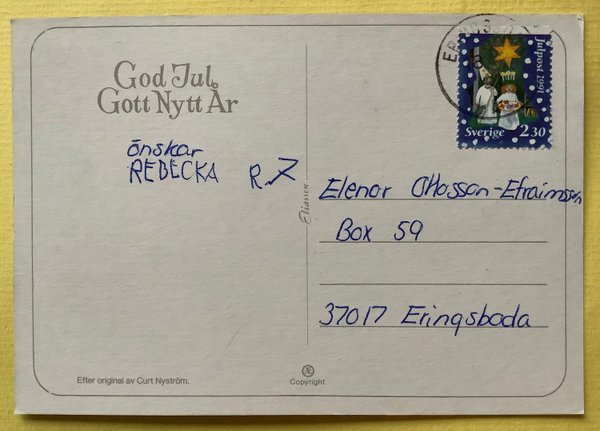 God Jul
Gott Nytt År
önskar
REBECKA R.
Julpost 1991
Sverige 2.30
Eliassen
Elenor Ottosson-Efraimsson
Box 59
37017 Eringsboda
Efter original av Curt Nyström.
Copyright